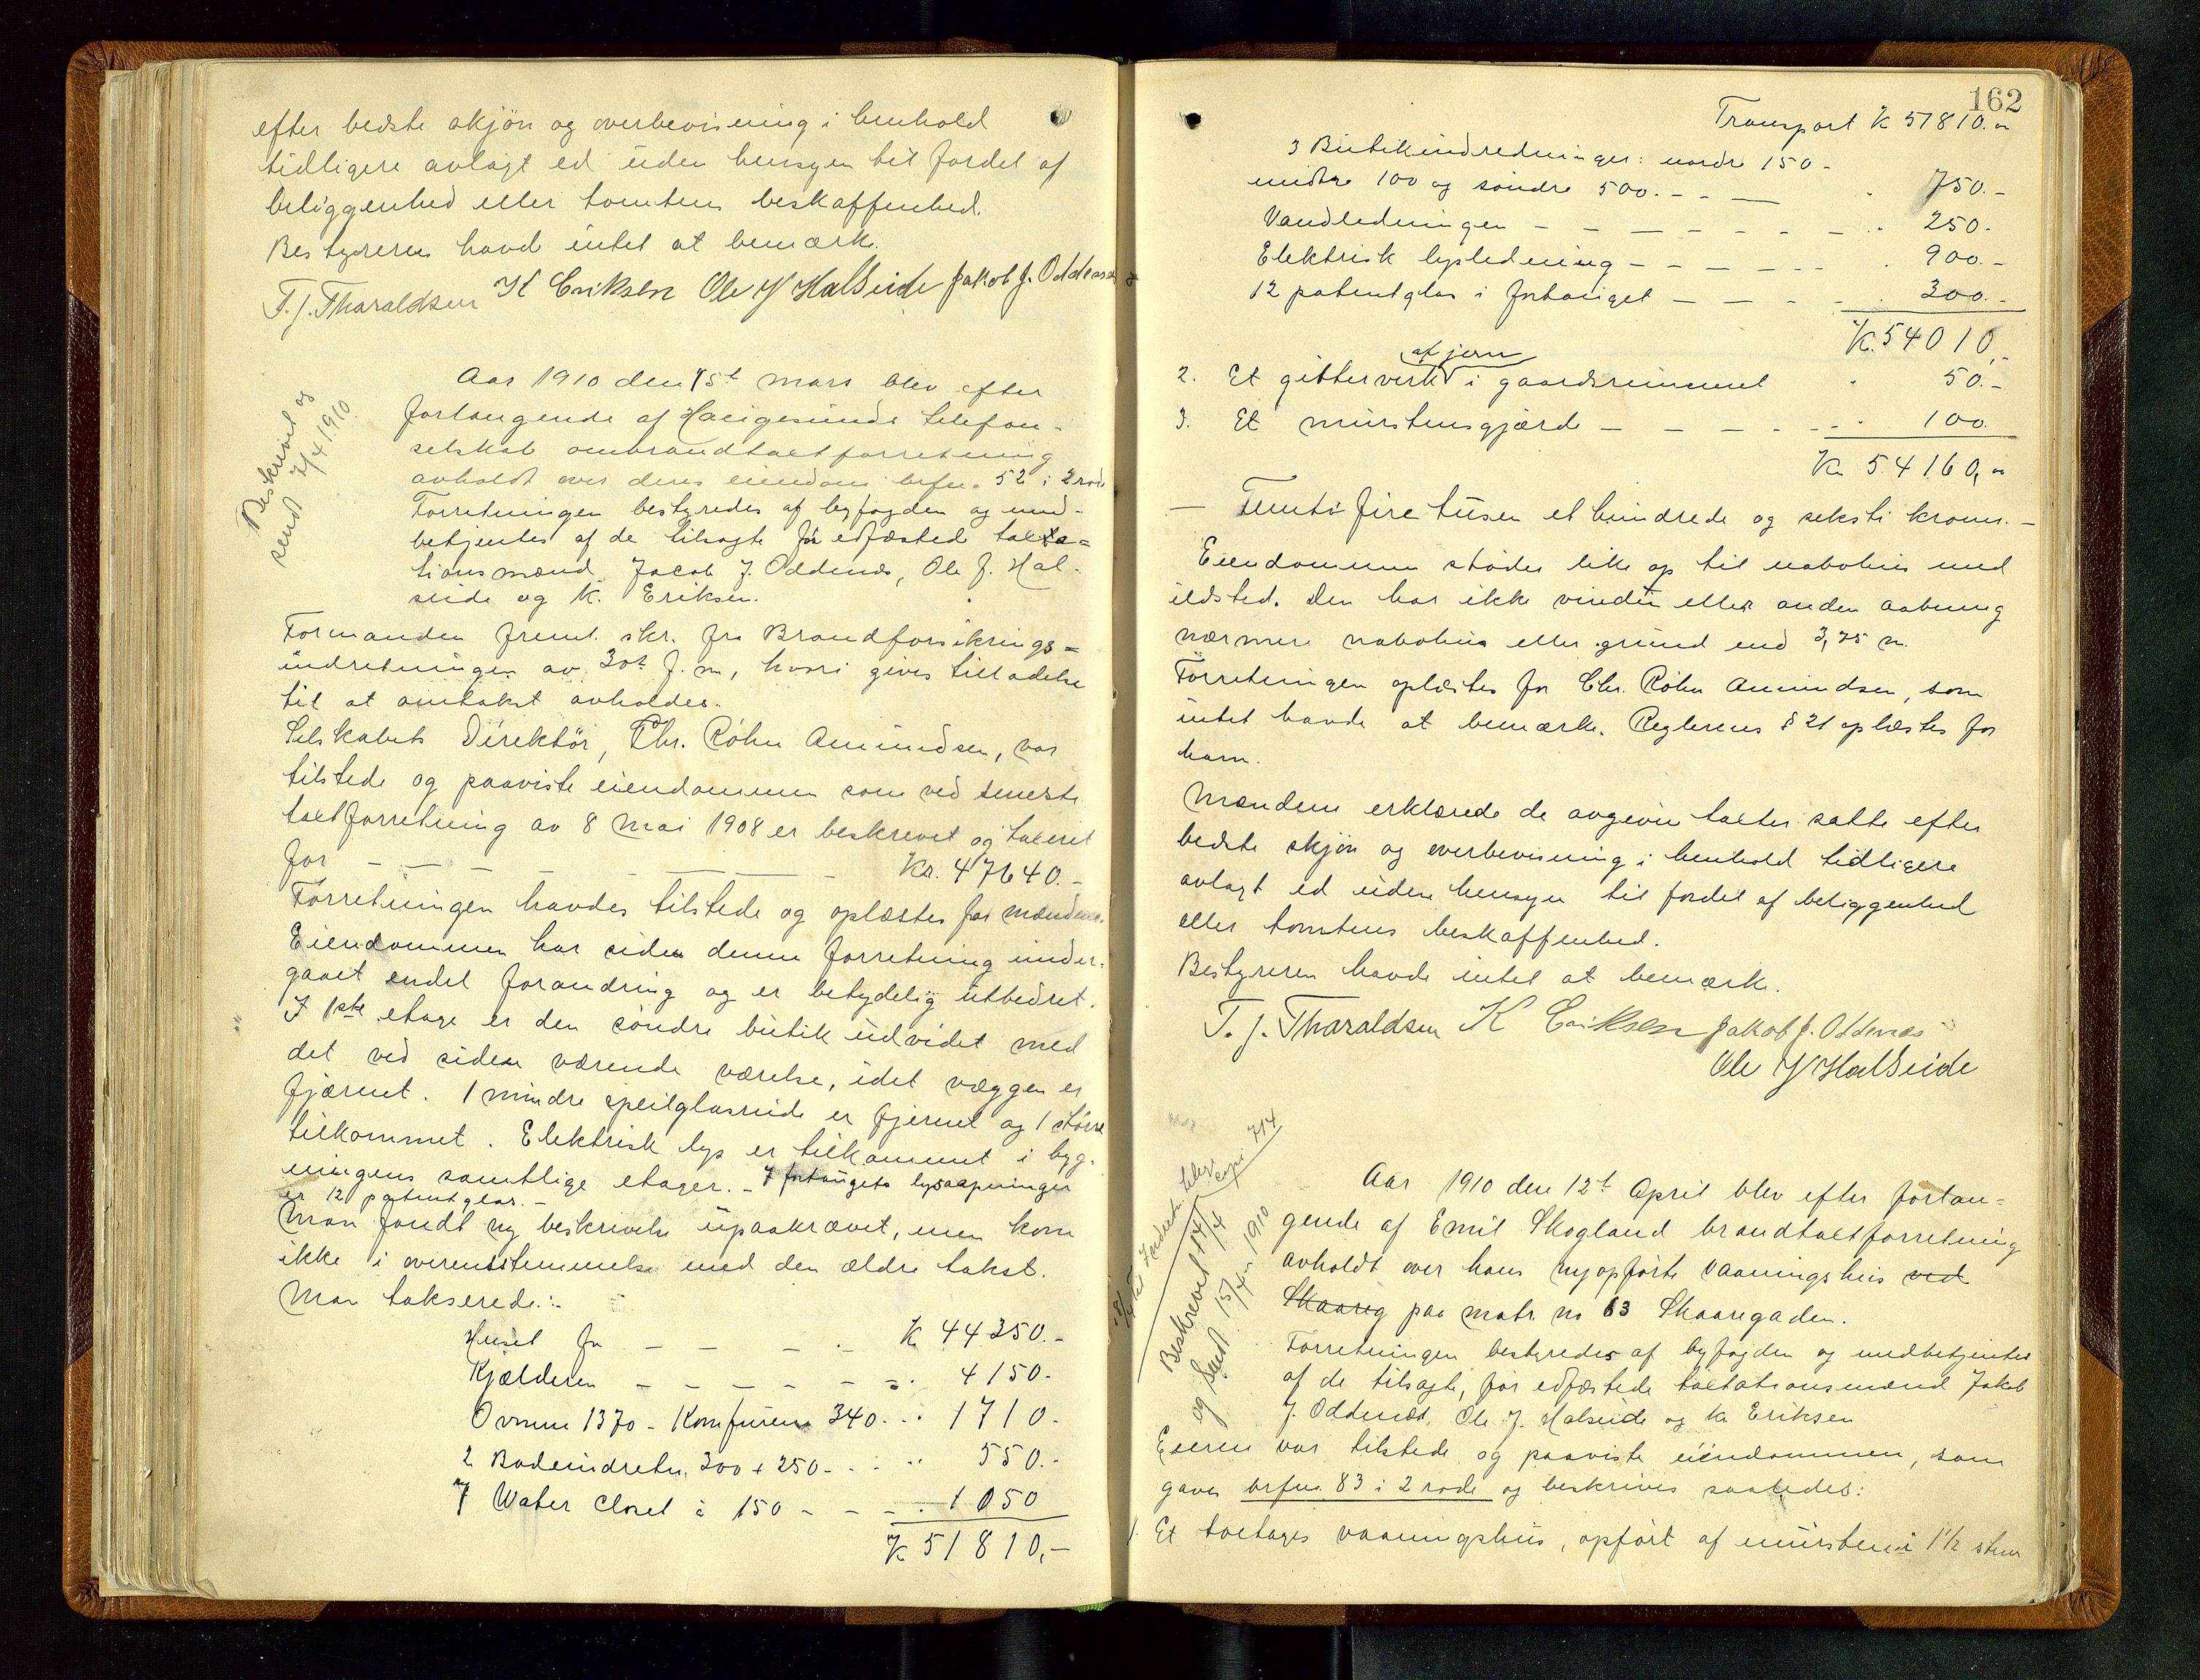 efter bedste skjøn og overbevisning i henhold
tidligere avlagt ed uden hensyn til fordel af
beliggenhed eller tomtens beskaffenhed.
Bestyreren havde intet at bemærke.
T. J. Tharaldsen K Eriksen Ole J Halseide Jakob J. Oddenæs
Beskrevet og
sendt 7/4 1910.
Aar 1910 den 15t mars blev efter
forlangende af Haugesunds telefon-
selskab ombrandtaxtforretning
avholdt over deres eiendom brfn. 52 i 2 rode
Forretningen bestyredes af byfogden og med-
betjentes af de tilsagte før edfæstede taxta=
tionsmænd Jacob J. Oddenæs, Ole J. Hal-
seide og K. Eriksen.
Formanden freml. skr. fra Brandforsikrings=
indretningen av 30t f. m, hvori gives tilladelse
til at omtakst avholdes.
Selskabets Direktør, Chr. Røhn Amundsen, var
tilstede og paaviste eiendommen som ved seneste
taxtforretning av 8 Mai 1908 er beskrevet og taxeret
for – – – – – Kr. 47640.-
Forretningen havdes tilstede og oplæstes for mændene.
Eiendommen har siden denne forretning under-
gaaet endel forandring og er betydelig utbedret.
I 1ste etage er den søndre butik udvidet med
det ved siden værende værelse, idet væggen er
fjærnet. 1 mindre speilglasrude er fjernet og 1 større
tilkommet. Elektrisk lys er tilkommet i byg-
ningens samtlige etager. - I fortaugets lysaapninger
er 12 patentglas. -
Man fandt ny beskrivelse upaakrævet, men kom
ikke i overensstemmelse med den ældre takst.
Man takserede:
Huset for – – – – K 44350.-
Kjælderen – – – – – – 4150.-
Ovnene 1370 - Komfurene 340 - 1710.-
2 Bodeindretn. 300 + 250 - 550.-
7 Water Closet à 150 - - - 1050
K 51810,-
162
Transport K 51810.-
3 Butikindredninger: nordre 150 -
midtre 100 og søndre 500. - - 750.-
Vandledningen – – – – – – 250.-
Elektrisk lysledning – – – – – 900.-
12 patentglas i fortauget – – – 300.-
K. 54010,-
af jern
2. Et gitterverk i gaardsrummet 50.-
3. Et murstensgjærde – – – – 100.
Kr 54160,-
– Femti fire tusen et hundrede og seksti kroner. –
Eiendommen støder like op til nabohus med
ildsted. Den har ikke vindu eller anden aabning
nærmere nabohus eller grund end 3,75 m.
Forretningen oplæstes for Chr. Røhn Amundsen, som
intet havde at bemærke. Reglernes § 21 oplæstes for
ham.
Mændene erklærede de avgivne taxter satte efter
bedste skjøn og overbevisning i henhold tidligere
avlagt ed uden hensyn til fordel af beliggenhed
eller tomtens beskaffenhed.
Bestyreren havde intet at bemærke.
T. J. Tharaldsen K Eriksen Jakob J. Oddenæs
Ole J Halseide
Beskrevet 14/4
og sendt 15/4 1910
Aar 1910 den 12t April blev efter forlan=
gende af Emil Skogland brandtaxtforretning
avholdt over hans nyopførte vaaningshus ved
Skaareg paa matr. no 63 Skaaregaden.
Forretningen bestyredes af byfogden og medbetjentes
af de tilsagte, før edfæstede taxtationsmænd Jakob
J. Oddenæs, Ole J. Halseide og K. Eriksen
Eieren var tilstede og paaviste eiendommen, som
gaves brfn. 83 i 2 rode og beskrives saaledes:
1. Et toetages vaaningshus, opført af mursten i 1 1/2 stens